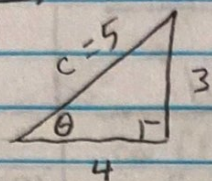 c=5
3
θ
4